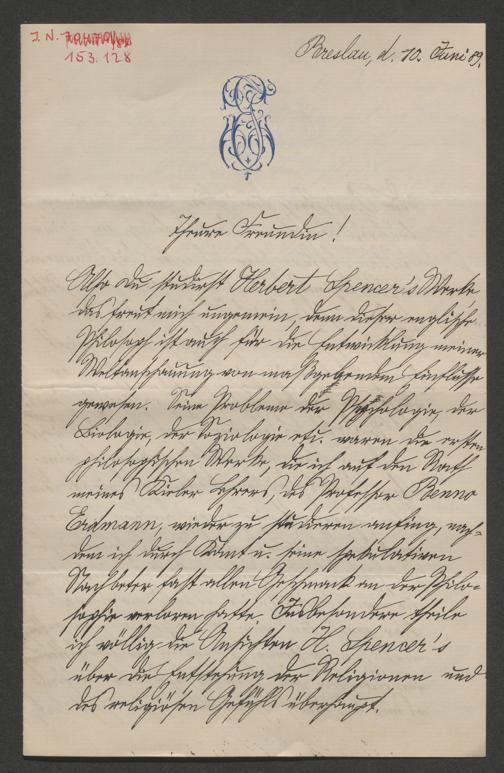 I. N.
153.128
Breslau, d. 10. Juni 89.
Theure Freundin!
Also du studirst Herbert Spencer's Werke
das freut mich ungemein, denn dieser englische
Philosoph ist auch für die Entwicklung meiner
Weltanschauung von maßgebendem Einflusse
gewesen. Seine Probleme der Psychologie, der
Biologie, der Soziologie etc. waren die ersten
philosophischen Werke, die ich auf den Rath
meines Kieler Lehrers, des Professor Benno
Erdmann, wieder zu studieren anfing, nach-
dem ich durch Kant u. seine spekulativen
Nachbeter fast allen Geschmack an der Philo-
sophie verloren hatte. Insbesondere theile
ich völlig die Ansichten H. Spencer's
über die Entstehung der Religionen und
des religiösen Gefühls überhaupt.